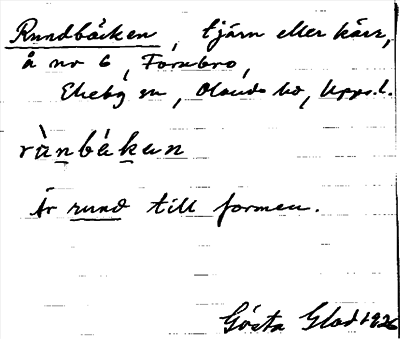 Rundbäcken, tjärn eller kärr,
å nr 6, Forsbro,
Ekeby sn, Olands hd, Upps. l.
rùnbákan
Är rund till formen.
Gösta Glad 1926